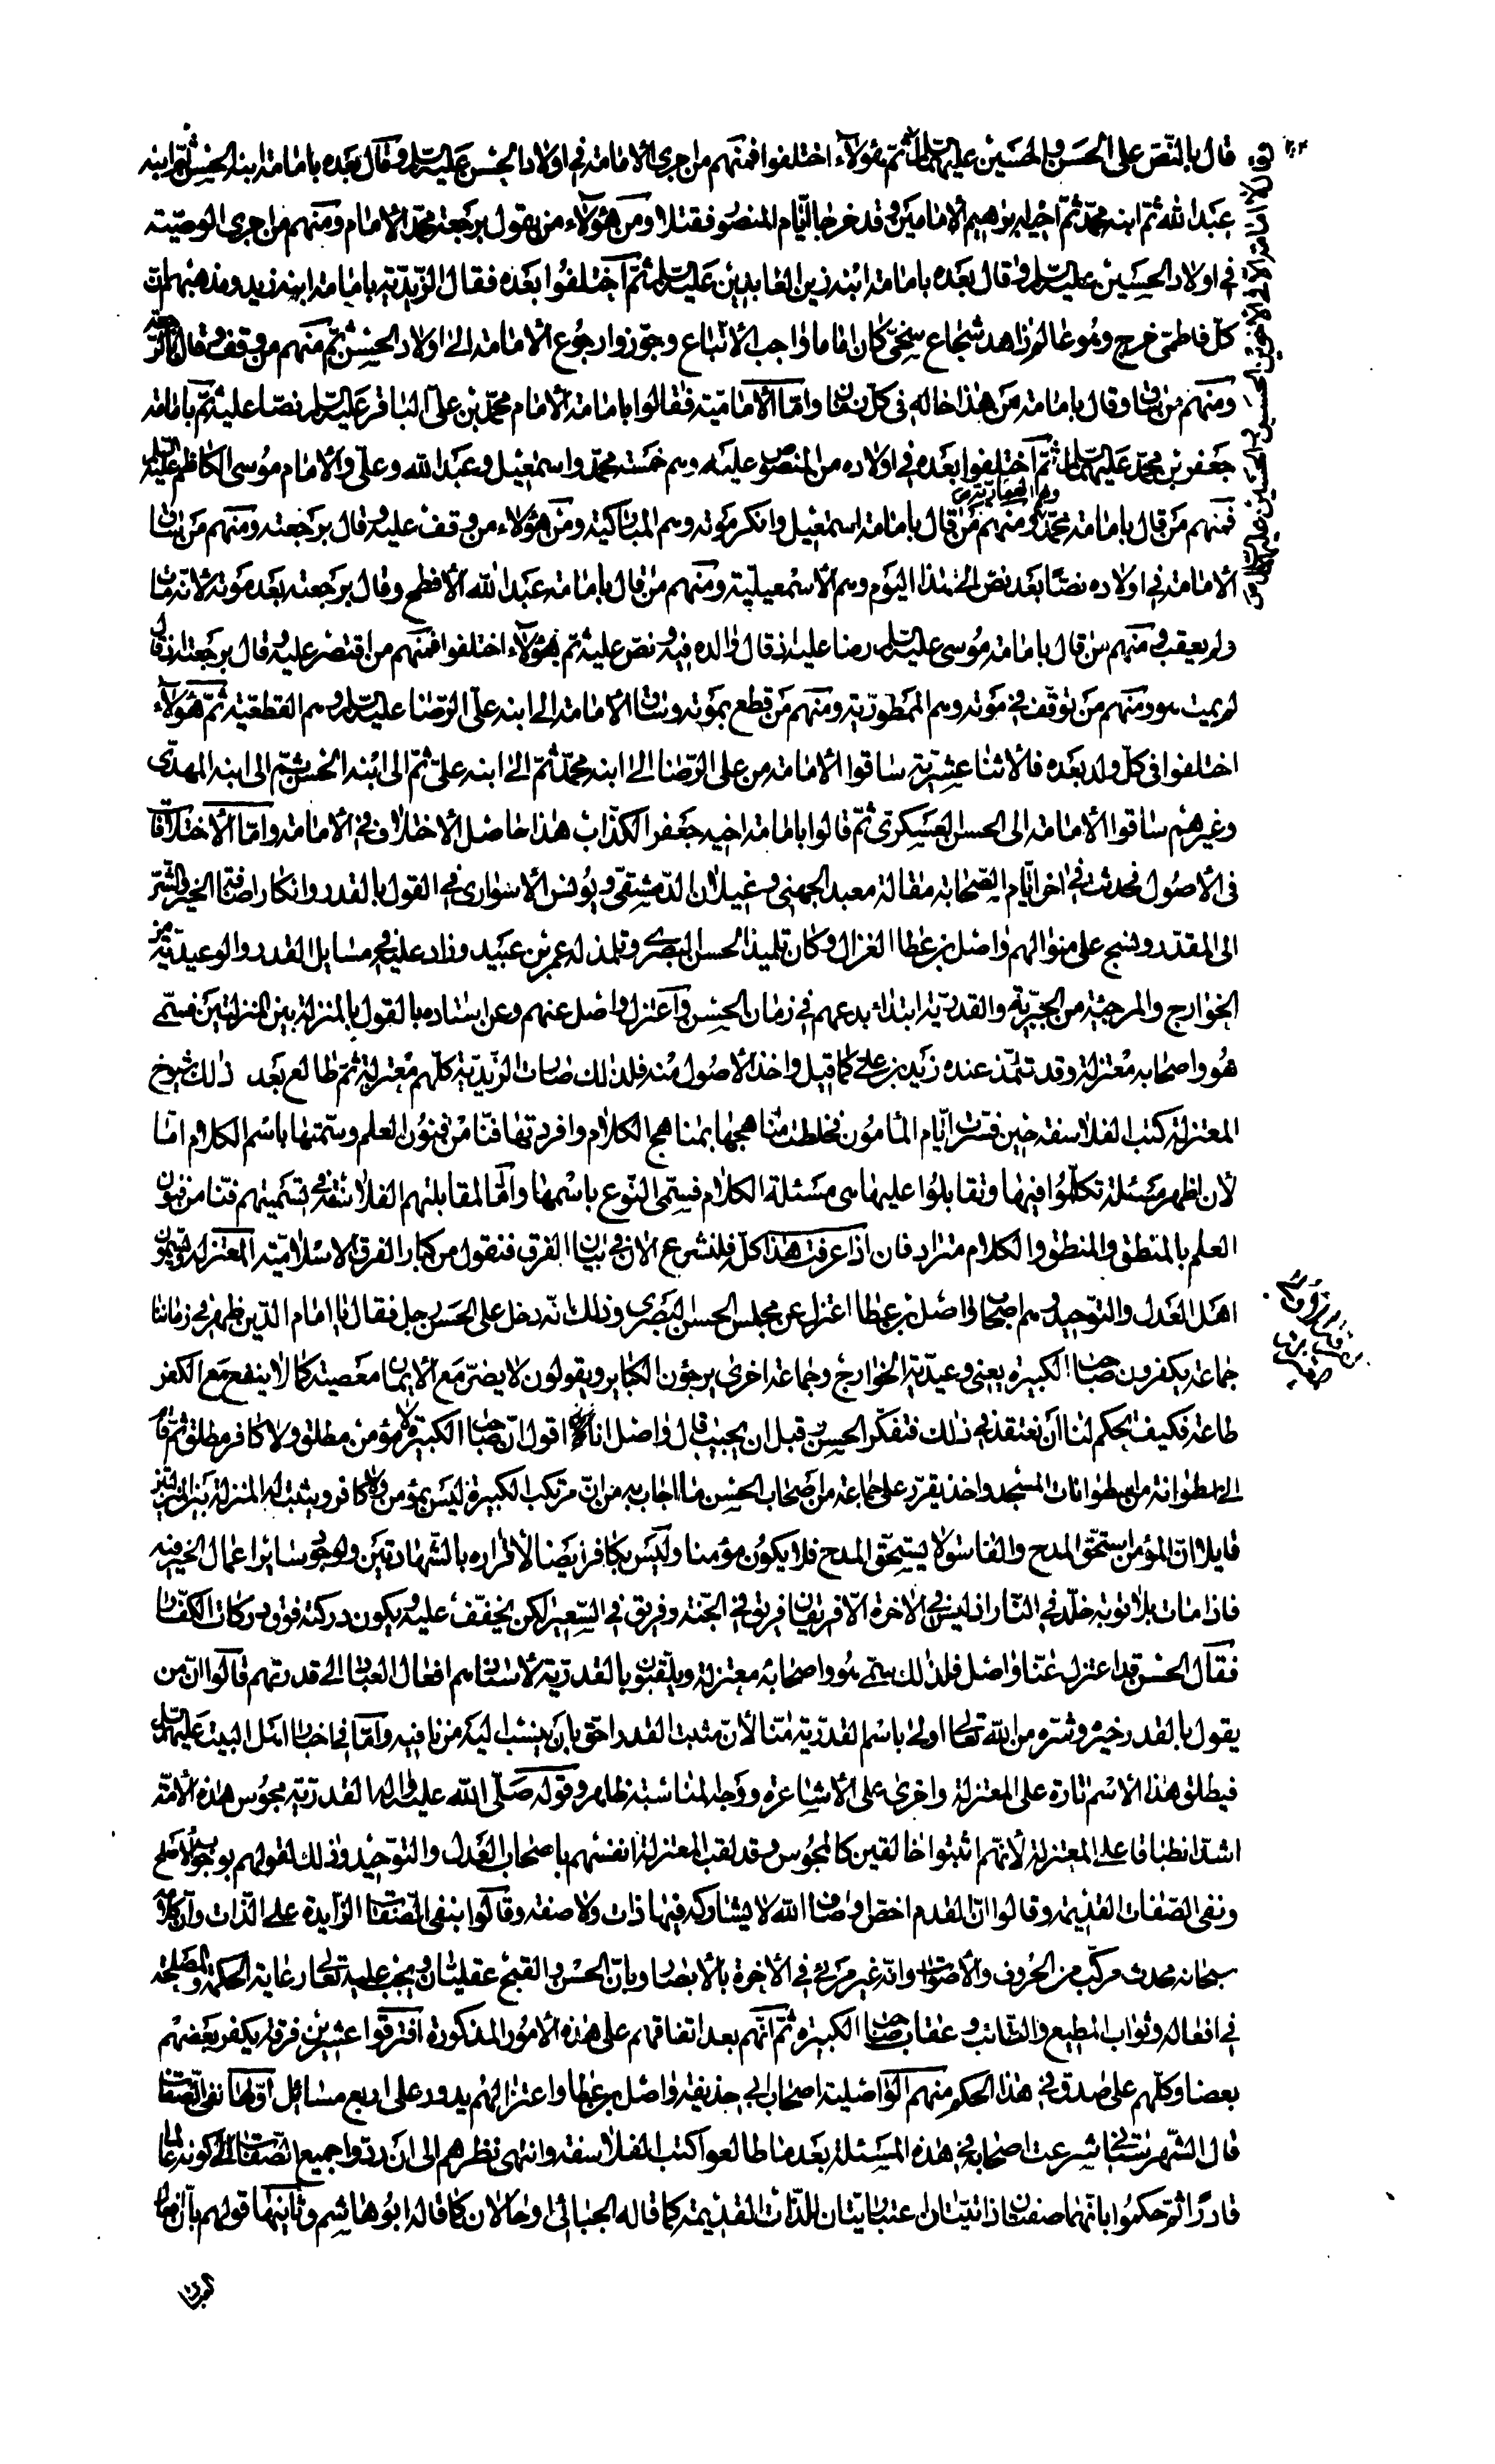 قال بالنص على الحسن والحسين عليهما السلام ثم هؤلاء اختلفوا فمنهم من اجرى الامامة في اولاد الحسن عليه السلم وقال بعده بامامة ابنه الحسن ثم ابنه
عبد الله ثم ابنه محمد ثم اخيه ابرهيم الامامين وقد خرجا ايام المنصور فقتلا ومن هؤلاء من يقول برجعة محمد الامام ومنهم من اجرى الوصية
في اولاد الحسين عليه السلم وقال بعده بامامة ابنه زين العابدين عليه السلم ثم اختلفوا بعده فقال الزيدية بامامة ابنه زيد ومذهبهم ان
كل فاطمي خرج وهو عالم زاهد شجاع سخي كان اماما واجب الاتباع وجوزوا رجوع الامامة الى اولاد الحسن ثم منهم من وقف وقال بالرجعة
ومنهم من ساق وقال بامامة من هذا حاله في كل زمان واما الامامية فقالوا بامامة الامام محمد بن علي الباقر عليه السلم نصا عليه ثم بامامة
جعفر بن محمد عليهما السلام ثم اختلفوا بعده في اولاده من المنصوص عليه وهم خمسة محمد واسمعيل وعبد الله وعلي والامام موسى الكاظم عليه السلم
فمنهم من قال بامامة محمد ومنهم من قال بامامة اسمعيل وانكر موته وهم المباركية ومن هؤلاء من وقف عليه وقال برجعته ومنهم من ساق
الامامة في اولاده نصا بعد نص الى هذا اليوم وهم الاسمعيلية ومنهم من قال بامامة عبد الله الافطح وقال برجعته بعد موته لانه مات
ولم يعقب ومنهم من قال بامامة موسى عليه السلم نصا عليه اذ قال والده فيه ونص عليه ثم هؤلاء اختلفوا فمنهم من اقتصر عليه وقال برجعته اذ قال
لم يمت هو ومنهم من توقف في موته وهم الممطورية ومنهم من قطع بموته وساق الامامة الى ابنه علي الرضا عليه السلم وهم القطعية ثم هؤلاء
اختلفوا في كل ولد بعده فالاثنا عشرية ساقوا الامامة من علي الرضا الى ابنه محمد ثم الى ابنه علي ثم الى ابنه الحسن ثم الى ابنه المهدي
وغيرهم ساقوا الامامة الى الحسن العسكري ثم قالوا بامامة اخيه جعفر الكذاب هذا حاصل الاختلاف في الامامة واما الاختلافات
في الاصول فحدثت في اخر ايام الصحابة مقالة معبد الجهني وغيلان الدمشقي ويونس الاسواري في القول بالقدر وانكار اضافة الخير والشر
الى المقدر ونسج على منوالهم واصل بن عطا الغزال وكان تلميذ الحسن البصري وتلمذ له عمر بن عبيد وزاد عليه في مسايل القدر والوعيدية من
الخوارج والمرجئة من الجبرية والقدرية ابتداء بدعهم في زمان الحسن واعتزل واصل عنهم وعن استاده بالقول بالمنزلة بين المنزلتين فسمى
هو واصحابه معتزلة وقد تلمذ عنده زيد بن علي كما قيل واخذ الاصول منه فلذلك صارت الزيدية كلهم معتزلة ثم طالع بعد ذلك شيوخ
المعتزلة كتب الفلاسفة حين فسرت ايام المامون فخلطت مناهجها بمناهج الكلام وافردتها فنا من فنون العلم وسمتها باسم الكلام اما
لان اظهر مسئلة تكلموا فيها وتقابلوا عليها هي مسئلة الكلام فسمي النوع باسمها واما لمقابلتهم الفلاسفة في تسميتهم فنا من فنون
العلم بالمنطق والمنطق والكلام مترادفان اذا عرفت هذا كله فلنشرع الان في بيان الفرق فنقول من كبار الفرق الاسلامية المعتزلة ويسمون
اهل العدل والتوحيد وهم اصحاب واصل بن عطا اعتزل عن مجلس الحسن البصري وذلك انه دخل على الحسن رجل فقال يا امام الدين ظهر في زماننا
جماعة يكفرون صاحب الكبيرة يعني وعيدية الخوارج وجماعة اخرى يرجؤن الكباير ويقولون لا يضر مع الايمان معصية كما لا ينفع مع الكفر
طاعة فكيف تحكم لنا ان نعتقد في ذلك فتفكر الحسن وقبل ان يجيب قال واصل انا اقول ان صاحب الكبيرة لا مؤمن مطلق ولا كافر مطلق ثم قام
الى اسطوانة من اسطوانات المسجد واخذ يقرر على جماعة من اصحاب الحسن ما اجاب به من ان مرتكب الكبيرة ليس بمؤمن ولا كافر ويثبت له المنزلة بين المنزلتين
قايلا ان المؤمن يستحق المدح والفاسق لا يستحق المدح فلا يكون مؤمنا وليس بكافر ايضا لاقراره بالشهادتين ولوجود ساير اعمال الخير فيه
فاذا مات بلا توبة خلد في النار اذ ليس في الاخرة الا فريقان فريق في الجنة وفريق في السعير لكن يخفف عليه ويكون دركته فوق دركات الكفار
فقال الحسن قد اعتزل عنا واصل فلذلك سمي هو واصحابه معتزلة ويلقبون بالقدرية لاسنادهم افعال العباد الى قدرتهم قالوا ان من
يقول بالقدر خيره وشره من الله تعالى اولى باسم القدرية منا لان مثبت القدر احق بان ينسب اليه من نافيه واما في اخبار اهل البيت عليهم السلم
فيطلق هذا الاسم تارة على المعتزلة واخرى على الاشاعرة ووجه المناسبة ظاهر وقوله صلى الله عليه واله القدرية مجوس هذه الامة
اشد انطباقا على المعتزلة لانهم اثبتوا خالقين كالمجوس وقد لقب المعتزلة انفسهم باصحاب العدل والتوحيد وذلك لقولهم بوجوب الاصلح
ونفي الصفات القديمة وقالوا ان القدم اخص اوصاف الله لا يشاركه فيها ذات ولا صفة وقالوا بنفي الصفات الزايدة على الذات وان كلامه
سبحانه محدث مركب من الحروف والاصوات وانه غير مرئي في الاخرة بالابصار وبان الحسن والقبح عقليان ويجب عليه تعالى رعاية الحكمة والمصلحة
في افعاله وثواب المطيع والتائب وعقاب صاحب الكبيرة ثم انهم بعد اتفاقهم على هذه الامور المذكورة افترقوا عشرين فرقة يكفر بعضهم
بعضا وكلهم على صدق في هذا الحكم منهم الواصلية اصحاب ابي حذيفة واصل بن عطا واعتزالهم يدور على اربع مسائل اولها نفي الصفات
قال الشهرستاني شرعت اصحابه في هذه المسئلة بعد ما طالعوا كتب الفلاسفة وانتهى نظرهم الى ان ردوا جميع الصفات الى كونه عالما
قادرا ثم حكموا بانهما صفتان ذاتيتان اعتباريتان للذات القديمة كما قاله الجبائي او حالان كما قاله ابو هاشم وثانيتها قولهم بان